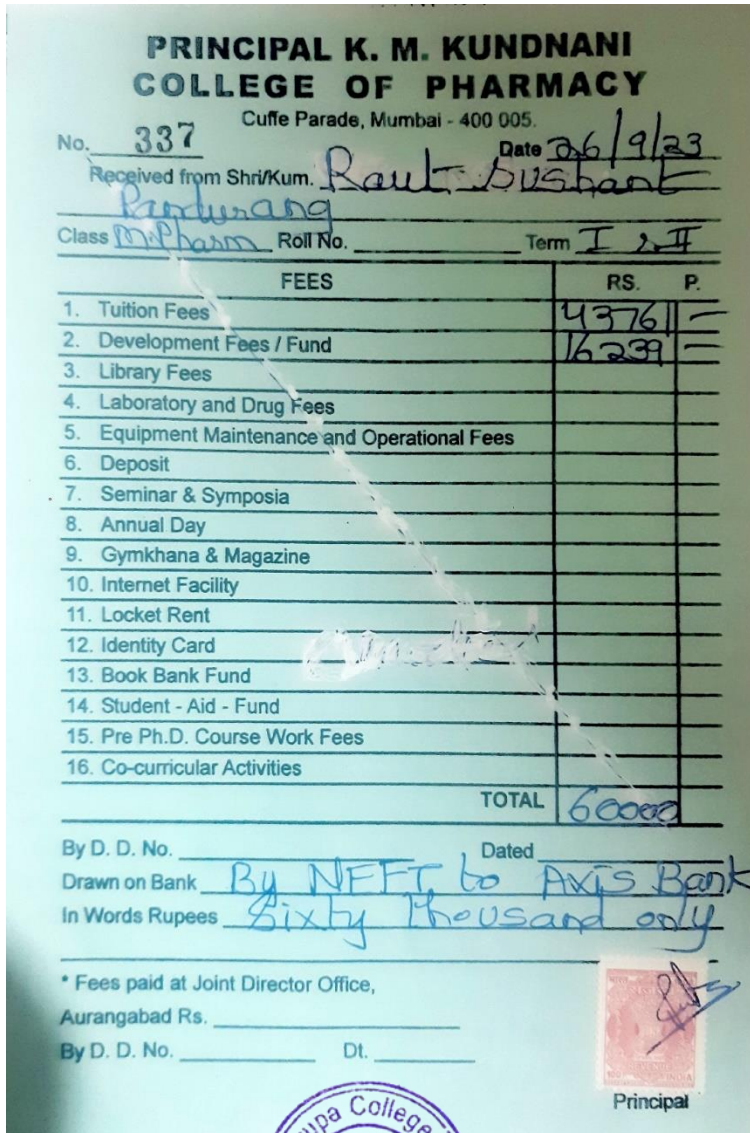 PRINCIPAL K. M. KUNDNANI
COLLEGE OF PHARMACY
Cuffe Parade, Mumbai - 400 005.
No. 337 Date 26/9/23
Received from Shri/Kum. Raut Sushant
Pandurang
Class M.Pharm Roll No. Term I & II
FEES RS. P.
1. Tuition Fees 43761 -
2. Development Fees / Fund 16239 =
3. Library Fees
4. Laboratory and Drug Fees
5. Equipment Maintenance and Operational Fees
6. Deposit
7. Seminar & Symposia
8. Annual Day
9. Gymkhana & Magazine
10. Internet Facility
11. Locket Rent
12. Identity Card
13. Book Bank Fund
14. Student - Aid - Fund
15. Pre Ph.D. Course Work Fees
16. Co-curricular Activities
TOTAL 60000
By D. D. No. Dated
Drawn on Bank By NEFT to Axis Bank
In Words Rupees Sixty Thousand only
* Fees paid at Joint Director Office,
Aurangabad Rs.
By D. D. No. Dt.
Principal
College